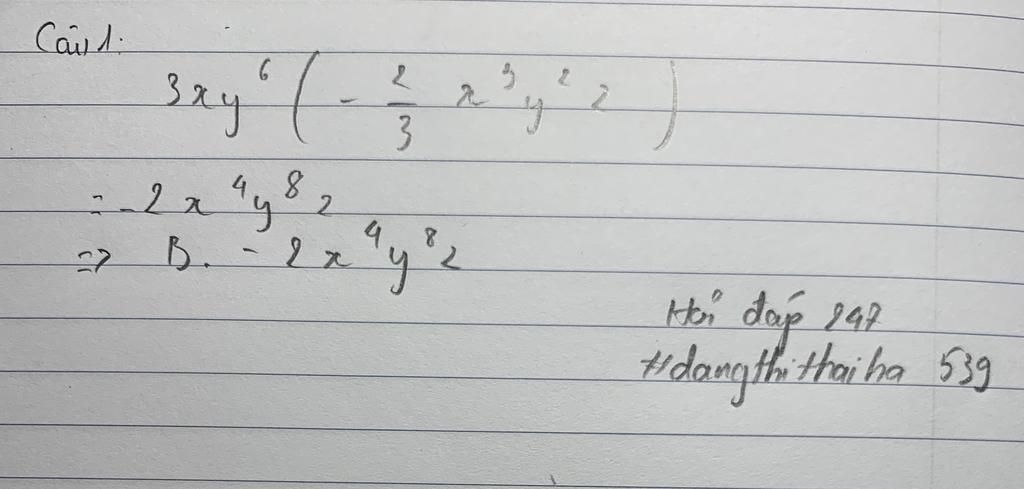 Câu 1:
3xy⁶(-2/3 x³y²z)
= -2x⁴y⁸z
=> B. -2x⁴y⁸z
Hỏi đáp 247
#dangthithaiha 539